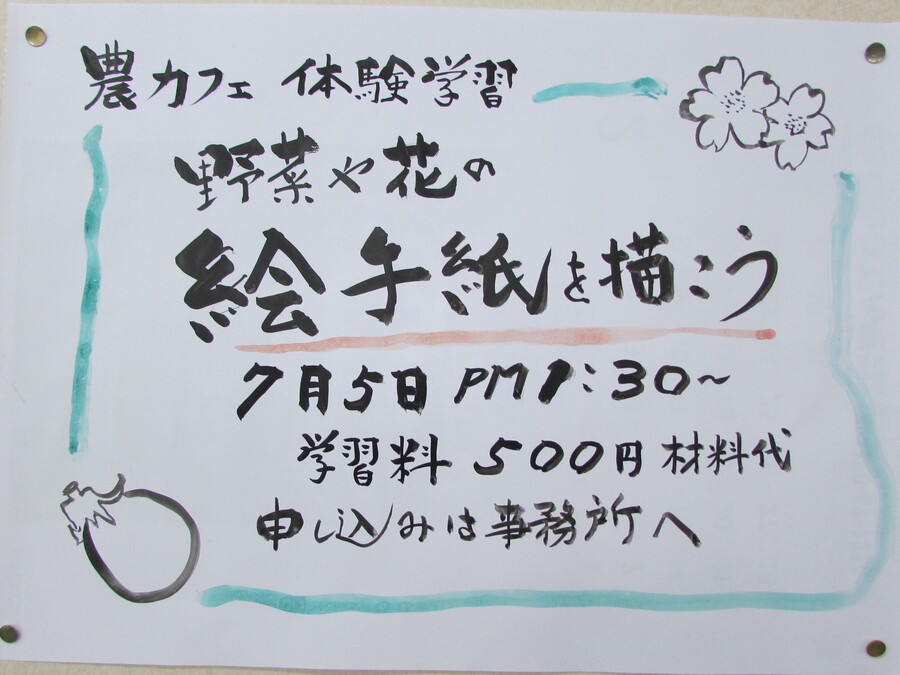 農カフェ 体験学習
野菜や花の
絵手紙を描こう
7月5日 PM1:30～
学習料 500円 材料代
申し込みは事務所へ